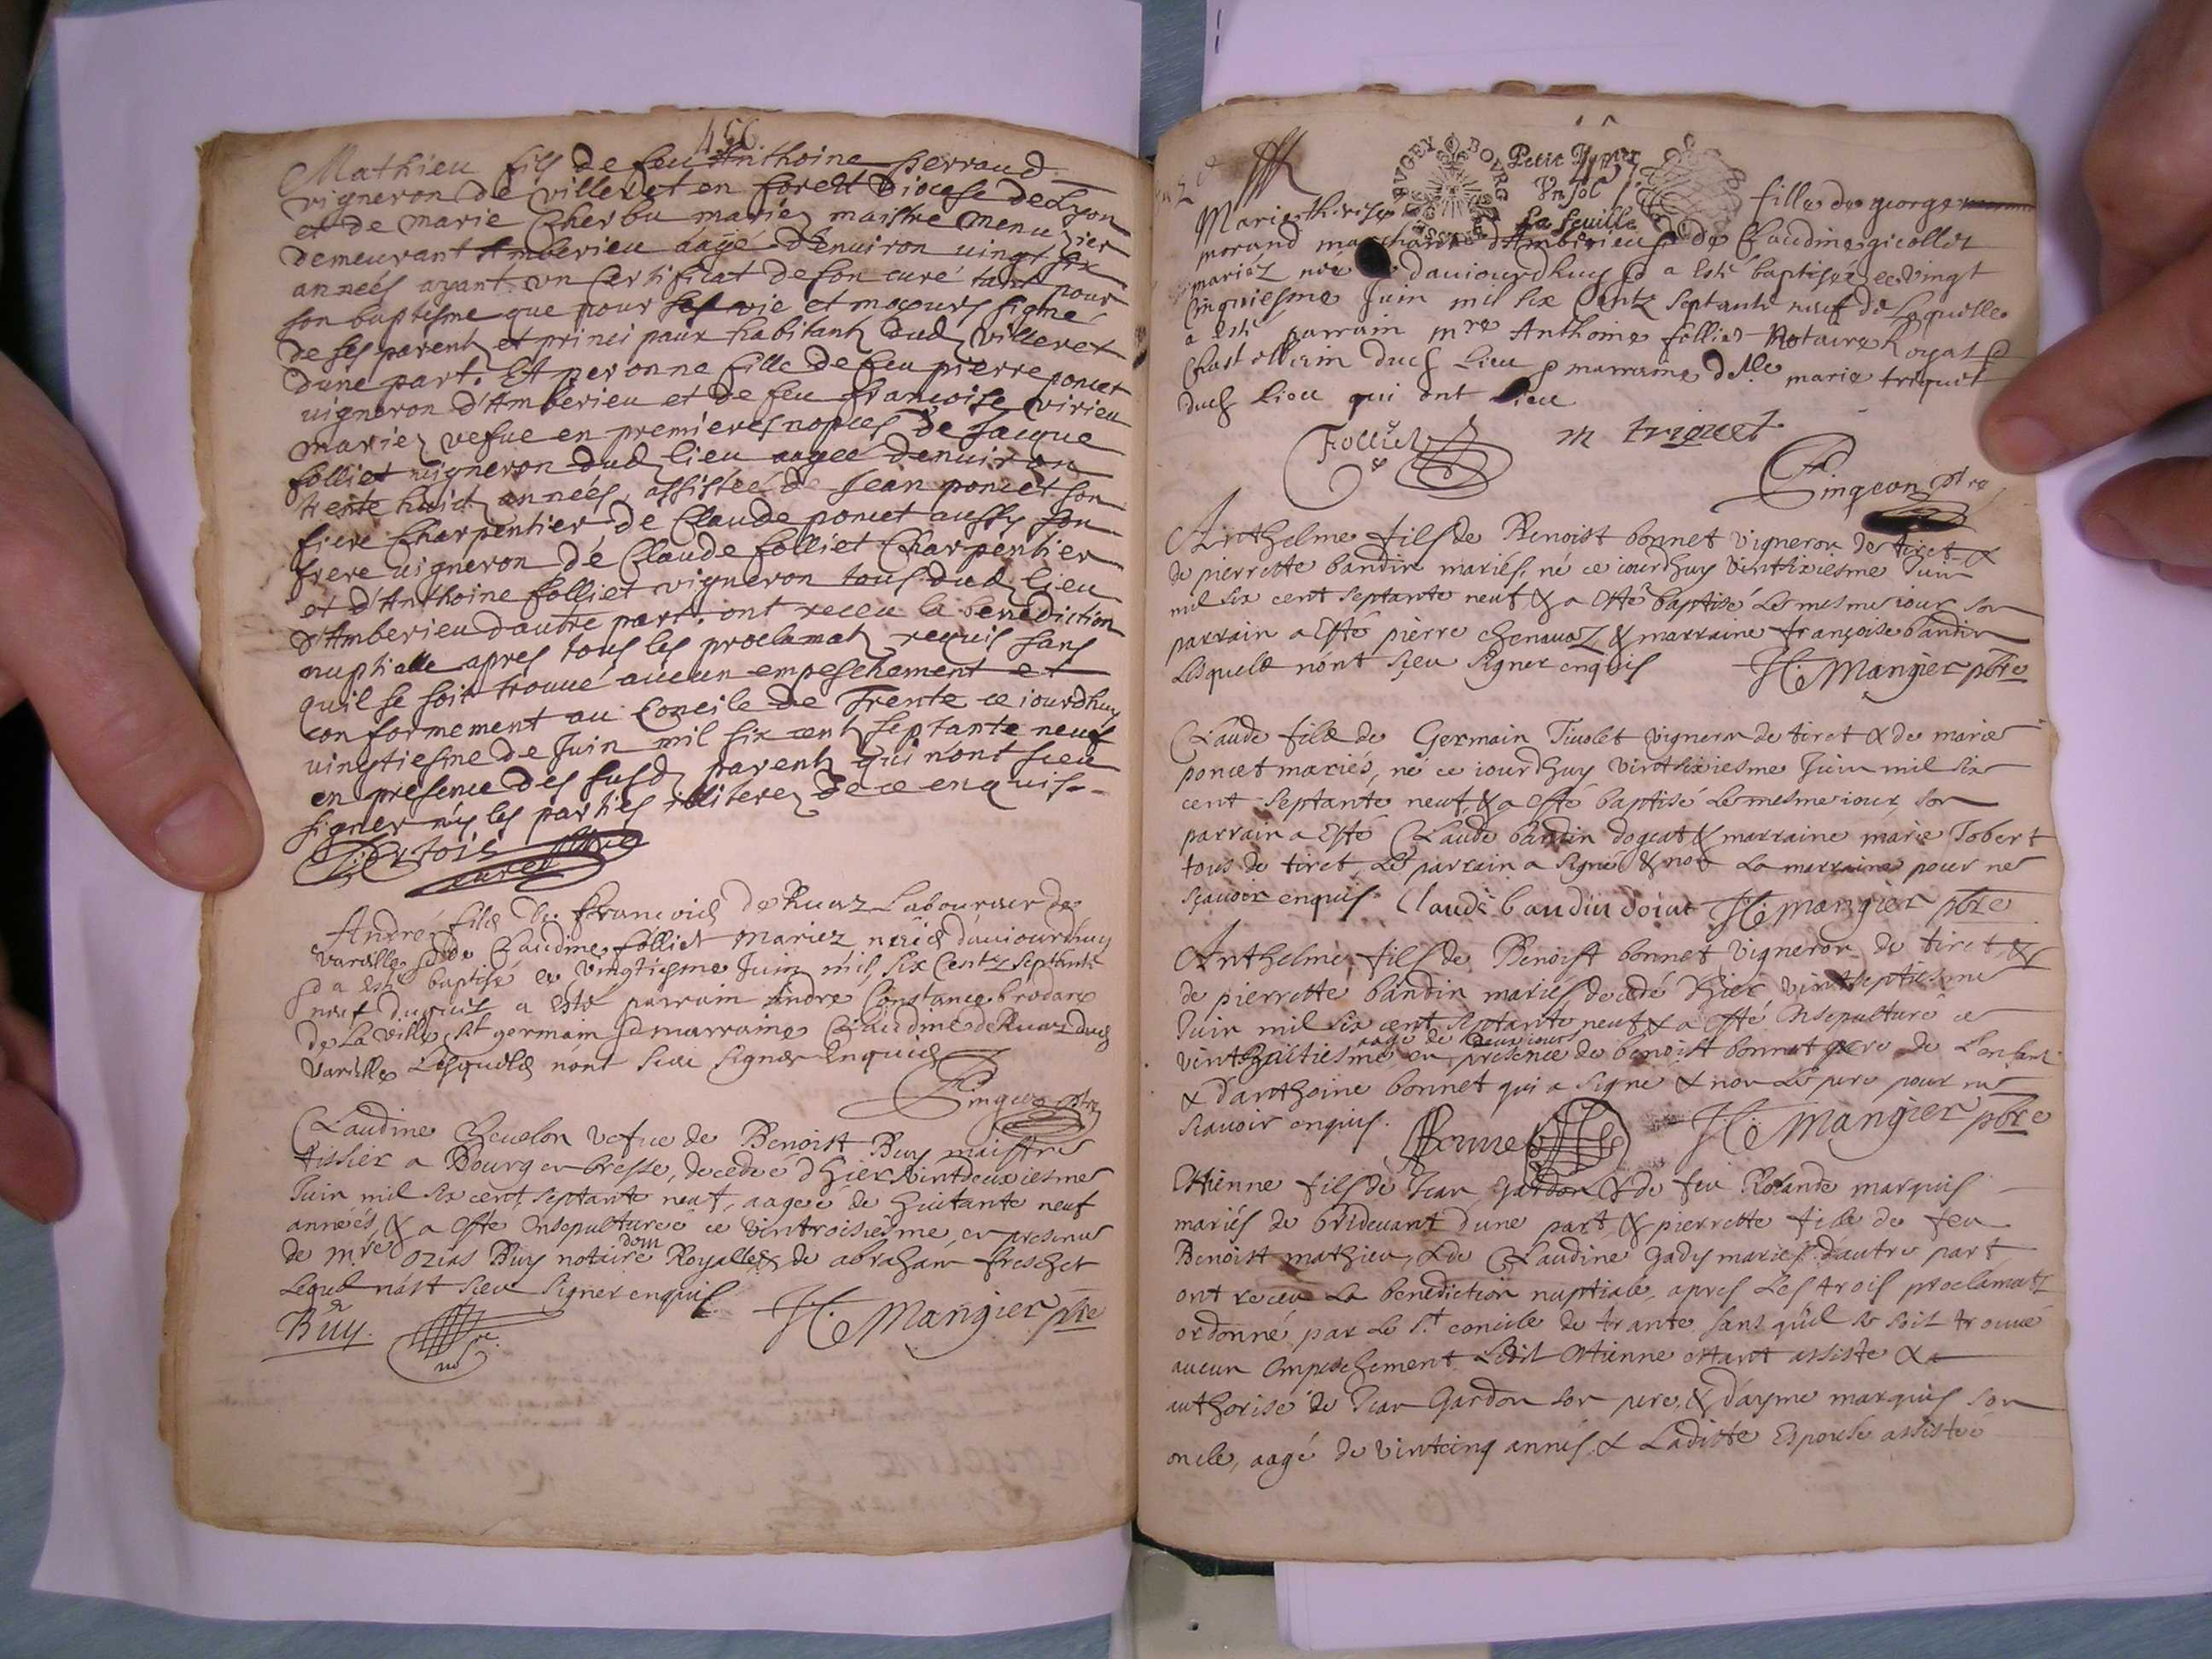 456
Mathieu fils de feu Anthoine perraud
vigneron de villeret en forest Diocese de Lyon
et de marie Cherbu mariez maistre menuizier
demeurant Amberieu aagé d'enuiron uingt six
années ayant un certificat de son curé tant pour
son baptisme que pour ses vie et moeurs signé
de ses parents et princi paux habitants dud villeret
dune part. Et peronne fille de feu pierre poncet
uigneron d'Amberieu et de feu francoise virieu
mariez vefue en premieres nopces de Jacque
folliet uigneron dud lieu aagee denuiron
trente huict années, assistée de Jean poncet son
frere Charpentier de Claude poncet aussy son
frere uigneron de Claude folliet Charpentier
et d'Anthoine folliet vigneron tous dud lieu
d'Amberieu dautre part. ont receu la benediction
nuptialle apres tous les proclamats requis sans
quil se soit trouué aucun empeschement et
conformement au Concile de Trente ce iourdhuy
uingtiesme de Juin mil six cents septante neuf
en presence des susd parents qui n'ont sceu
signer ny les parties illiterez de ce enquis
curé
André fils de francois de Ruaz Laboureur de
Vareille & de Claudine folliet mariez né dauiourdhuy
& a esté baptisé ce vingtiesme Juin mil six Cents septante
neuf duquel a esté parrain Andre Constance
de La ville St germain & marraine Claudine de Ruaz dud
Vareille Lesquels nont sceu signer Enquis
Pingeon ptre
Claudine Cheuelon vefue de Benoist Buy maistre
tissier a Bourg en bresse, decedeé d'hier vintdeuxiesme
Juin mil six cent septante neuf, aageé de huitante neuf
anneés, & a esté Ensepultureé ce vintroisiesme en presence
de mre ozias Buy notaire Royalle & de abraham freschet
Lequel n'ast sceu signer enquis.
Buy. H. Mangier pbre
BVGEY BOVRG
Petit Papier
Vn sol
La feuille
Marie therese fille de george
morand marchand d'Amberieu & de Claudine gicollet
mariéz née dauiourdhuy & a Esté baptisée ce Vingt
Cinquiesme Juin mil six Centz septante neuf de Laquelle
a esté parrain mre Anthoine folliet Notaire Royal &
Chastellain dud Lieu & marraine delle marie triquet
dud Lieu qui ont
Folliet m triquet
Pingeon ptre
Anthelme fils de Benoist bonnet vigneron de tiret &
de pierrette baudin mariés, né ce iourdhuy vintsixiesme Juin
mil six cent septante neuf & a esté baptisé Le mesme iour son
parrain a Esté pierre chenauaz & marraine françoise baudin
Lesquels n'ont sçeu signer enquis H. Mangier pbre
Claude fils de Germain Tiuolet vigneron de tiret & de marie
poncet mariés, né ce iourdhuy vintsixiesme Juin mil six
cent septante neuf, & a esté baptisé Le mesme iour, son
parrain a Esté Claude baudin dogeat & marraine marie Jobert
tous de tiret, Le parrain a signé & non La marraine pour ne
sçauoir enquis. Claude baudin doiat H. Mangier pbre
Anthelme fils de Benoist bonnet vigneron de tiret, &
de pierrette baudin mariés, decedé d'hier vintseptiesme
Juin mil six cent septante neuf & a esté Ensepulturé ce
aagé de deux iours
vinthuitiesme en presence de benoist bonnet pere de L'enfant
& d'anthoine bonnet qui a signé & non Le pere pour ne
scauoir enquis. Bonnet H. Mangier pbre
Etienne fils de Jean Gardon & de feu Rolande marquis
mariés de brideuant d'une part, & pierrette fille de feu
Benoist mathieu, & de Claudine gady mariés d'autre part
ont receu La benediction nuptiale, apres Les trois proclamats
ordonné par Le St concile de trante, sans qu'il se soit trouué
aucun Empeschement, Ledit Etienne estant assisté &
authorisé de Jean Gardon son pere, & d'ayme marquis son
oncle, aagé de vintcinq annés & Laditte Espouse assistée